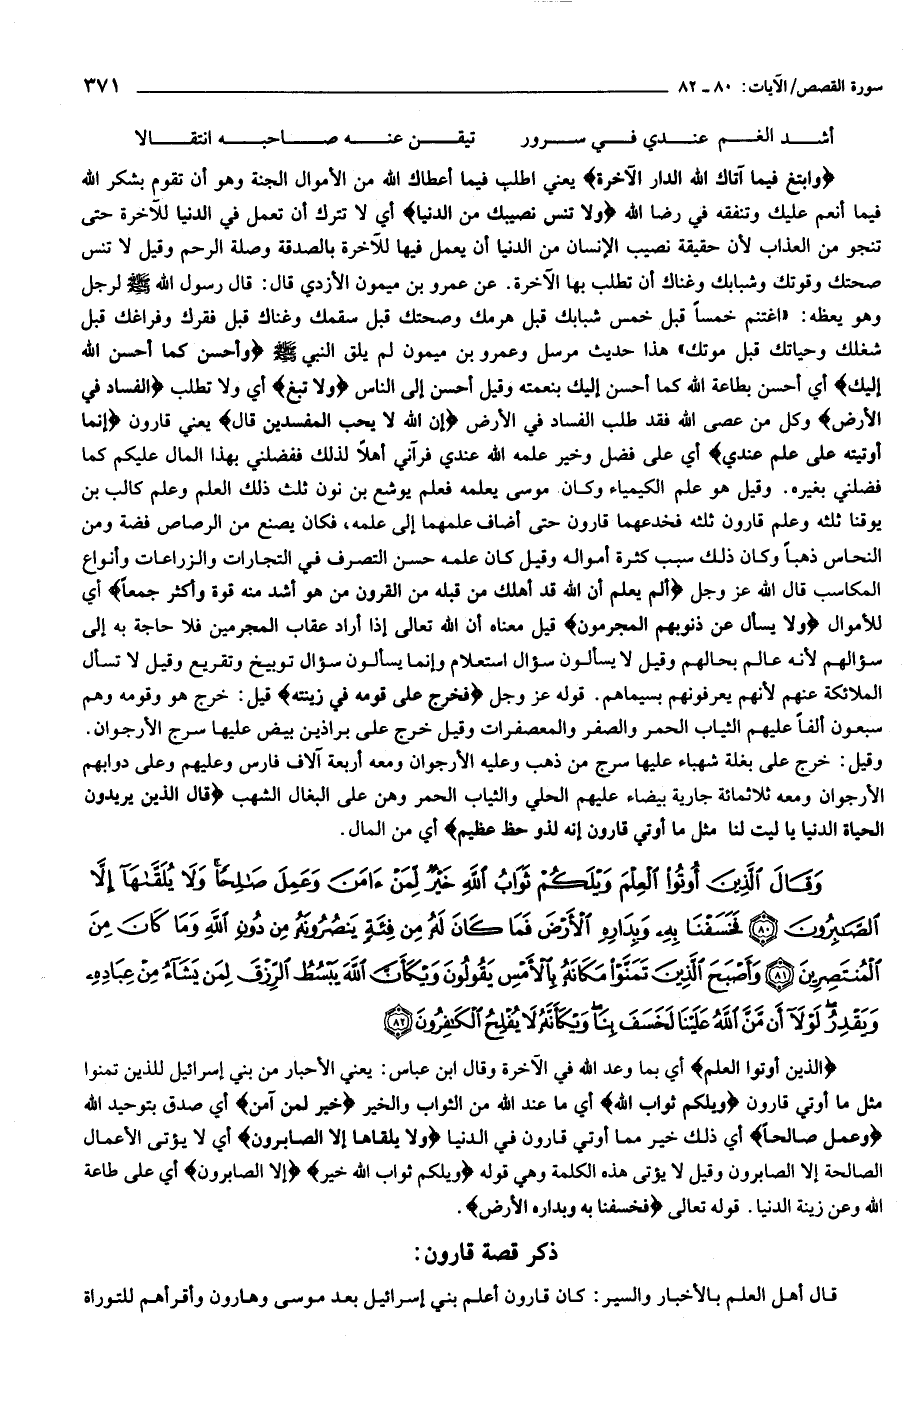 سورة القصص/الآيات: ٨٠ ـ ٨٢ ٣٧١
أشد الغم عندي في سرور تيقن عنه صاحبه انتقالا
﴿وابتغ فيما آتاك الله الدار الآخرة﴾ يعني اطلب فيما أعطاك الله من الأموال الجنة وهو أن تقوم بشكر الله
فيما أنعم عليك وتنفقه في رضا الله ﴿ولا تنس نصيبك من الدنيا﴾ أي لا تترك أن تعمل في الدنيا للآخرة حتى
تنجو من العذاب لأن حقيقة نصيب الإنسان من الدنيا أن يعمل فيها للآخرة بالصدقة وصلة الرحم وقيل لا تنس
صحتك وقوتك وشبابك وغناك أن تطلب بها الآخرة. عن عمرو بن ميمون الأزدي قال: قال رسول الله ﷺ لرجل
وهو يعظه: «اغتنم خمساً قبل خمس شبابك قبل هرمك وصحتك قبل سقمك وغناك قبل فقرك وفراغك قبل
شغلك وحياتك قبل موتك» هذا حديث مرسل وعمرو بن ميمون لم يلق النبي ﷺ ﴿وأحسن كما أحسن الله
إليك﴾ أي أحسن بطاعة الله كما أحسن إليك بنعمته وقيل أحسن إلى الناس ﴿ولا تبغ﴾ أي ولا تطلب ﴿الفساد في
الأرض﴾ وكل من عصى الله فقد طلب الفساد في الأرض ﴿إن الله لا يحب المفسدين قال﴾ يعني قارون ﴿إنما
أوتيته على علم عندي﴾ أي على فضل وخير علمه الله عندي فرآني أهلاً لذلك ففضلني بهذا المال عليكم كما
فضلني بغيره. وقيل هو علم الكيمياء وكان موسى يعلمه فعلم يوشع بن نون ثلث ذلك العلم وعلم كالب بن
يوقنا ثلثه وعلم قارون ثلثه فخدعهما قارون حتى أضاف علمهما إلى علمه، فكان يصنع من الرصاص فضة ومن
النحاس ذهباً وكان ذلك سبب كثرة أمواله وقيل كان علمه حسن التصرف في التجارات والزراعات وأنواع
المكاسب قال الله عز وجل ﴿ألم يعلم أن الله قد أهلك من قبله من القرون من هو أشد منه قوة وأكثر جمعاً﴾ أي
للأموال ﴿ولا يسأل عن ذنوبهم المجرمون﴾ قيل معناه أن الله تعالى إذا أراد عقاب المجرمين فلا حاجة به إلى
سؤالهم لأنه عالم بحالهم وقيل لا يسألون سؤال استعلام وإنما يسألون سؤال توبيخ وتقريع وقيل لا تسأل
الملائكة عنهم لأنهم يعرفونهم بسيماهم. قوله عز وجل ﴿فخرج على قومه في زينته﴾ قيل: خرج هو وقومه وهم
سبعون ألفاً عليهم الثياب الحمر والصفر والمعصفرات وقيل خرج على براذين بيض عليها سرج الأرجوان.
وقيل: خرج على بغلة شهباء عليها سرج من ذهب وعليه الأرجوان ومعه أربعة آلاف فارس وعليهم وعلى دوابهم
الأرجوان ومعه ثلاثمائة جارية بيضاء عليهم الحلي والثياب الحمر وهن على البغال الشهب ﴿قال الذين يريدون
الحياة الدنيا يا ليت لنا مثل ما أوتي قارون إنه لذو حظ عظيم﴾ أي من المال.
وَقَالَ ٱلَّذِينَ أُوتُوا۟ ٱلْعِلْمَ وَيْلَكُمْ ثَوَابُ ٱللَّهِ خَيْرٌ لِّمَنْ ءَامَنَ وَعَمِلَ صَـٰلِحًا ۚ وَلَا يُلَقَّىٰهَآ إِلَّا
ٱلصَّـٰبِرُونَ ﴿٨٠﴾ فَخَسَفْنَا بِهِۦ وَبِدَارِهِ ٱلْأَرْضَ فَمَا كَانَ لَهُۥ مِن فِئَةٍ يَنصُرُونَهُۥ مِن دُونِ ٱللَّهِ وَمَا كَانَ مِنَ
ٱلْمُنتَصِرِينَ ﴿٨١﴾ وَأَصْبَحَ ٱلَّذِينَ تَمَنَّوْا۟ مَكَانَهُۥ بِٱلْأَمْسِ يَقُولُونَ وَيْكَأَنَّ ٱللَّهَ يَبْسُطُ ٱلرِّزْقَ لِمَن يَشَآءُ مِنْ عِبَادِهِۦ
وَيَقْدِرُ ۖ لَوْلَآ أَن مَّنَّ ٱللَّهُ عَلَيْنَا لَخَسَفَ بِنَا ۖ وَيْكَأَنَّهُۥ لَا يُفْلِحُ ٱلْكَـٰفِرُونَ ﴿٨٢﴾
﴿الذين أوتوا العلم﴾ أي بما وعد الله في الآخرة وقال ابن عباس: يعني الأحبار من بني إسرائيل للذين تمنوا
مثل ما أوتي قارون ﴿ويلكم ثواب الله﴾ أي ما عند الله من الثواب والخير ﴿خير لمن آمن﴾ أي صدق بتوحيد الله
﴿وعمل صالحاً﴾ أي ذلك خير مما أوتي قارون في الدنيا ﴿ولا يلقاها إلا الصابرون﴾ أي لا يؤتى الأعمال
الصالحة إلا الصابرون وقيل لا يؤتى هذه الكلمة وهي قوله ﴿ويلكم ثواب الله خير﴾ ﴿إلا الصابرون﴾ أي على طاعة
الله وعن زينة الدنيا. قوله تعالى ﴿فخسفنا به وبداره الأرض﴾.
ذكر قصة قارون:
قال أهل العلم بالأخبار والسير: كان قارون أعلم بني إسرائيل بعد موسى وهارون وأقرأهم للتوراة